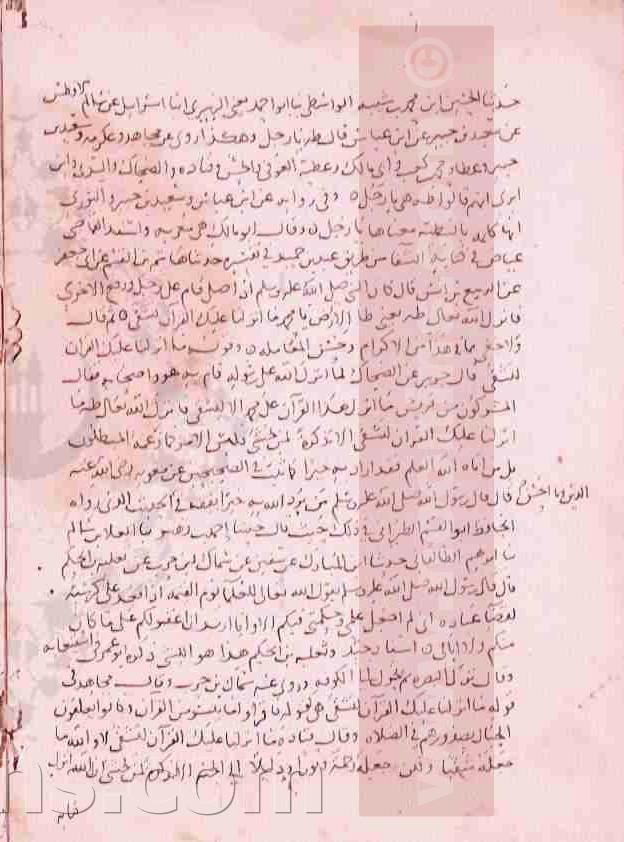 حدثنا الحسين ابن محمد بن شنبه الواسطي ثنا ابو احمد يعني الزبيري انبا اسرائيل عن سالم الافطس
عن سعيد بن جبير عن ابن عباس قال طه يا رجل وهكذا روي عن مجاهد وعكرمه وسعيد بن
جبير وعطا ومحمد بن كعب وابي مالك وعطية العوفي والحسن وقتاده والضحاك والسدي وابن
ابزى انهم قالوا طه يا رجل وفي روايه عن ابن عباس وسعيد بن جبير والثوري
انها كلمه بالنبطيه معناها يا رجل وقال ابو مالك هي معربه واسند القاضي
عياض في كتابه الشفا من طريق عبد بن حميد في تفسيره حدثنا هاشم بن القسم عن ابي جعفر
عن الربيع بن انس قال كان النبي صلى الله عليه وسلم اذا صلى قام على رجل ورفع الاخرى
فانزل الله تعالى طه يعني طا الارض يا محمد ما انزلنا عليك القرآن لتشقى ثم قال
ولا خفا بما في هذا من الاكرام وحسن المعامله وقوله ما انزلنا عليك القران
لتشقى قال جويبر عن الضحاك لما انزل الله على رسوله قام به هو واصحابه فقال
المشركون من قريش ما انزل هذا القرآن على محمد الا ليشقى فانزل الله تعالى طه ما
انزلنا عليك القران لتشقى الا تذكرة لمن يخشى فليس الامر كما زعمه المبطلون
بل من اتاه الله العلم فقد اراد به خيرا كما ثبت في الصحيحين عن معويه رضي الله عنه
قال قال رسول الله صلى الله عليه وسلم من يرد الله به خيرا يفقهه في الدين وما احسن الحديث الذي رواه
الحافظ ابو القسم الطبراني في ذلك حيث قال حدثنا احمد بن زهير ثنا العلا بن سالم
ثنا ابرهيم الطالقاني حدثنا ابن المبارك عن سفين عن سماك ابن حرب عن ثعلبه بن الحكم
قال قال رسول الله صلى الله عليه وسلم يقول الله تعالى للعلما يوم القيمه اذا قعد على كرسيه
لقضا عباده اني لم اجعل علمي وحكمتي فيكم الا وانا اريد ان اغفر لكم على ما كان
منكم ولا ابالي اسناد جيد وثعلبه بن الحكم هذا هو الليثي ذكره ابو عمر في استيعابه
وقال نزل البصره ثم تحول الى الكوفه وروى عنه سماك بن حرب وقال مجاهد في
قوله ما انزلنا عليك القرآن لتشقى هي كقوله فاقراوا ما تيسر من القران وكانوا يعلقون
الحبال بصدورهم في الصلاه وقال قتاده ما انزلنا عليك القرآن لتشقى لا والله ما
جعله شقيا ولكن جعله رحمة ونورا ودليلا الى الجنه الا تذكرة لمن يخشى ان الله انزل
كتابه